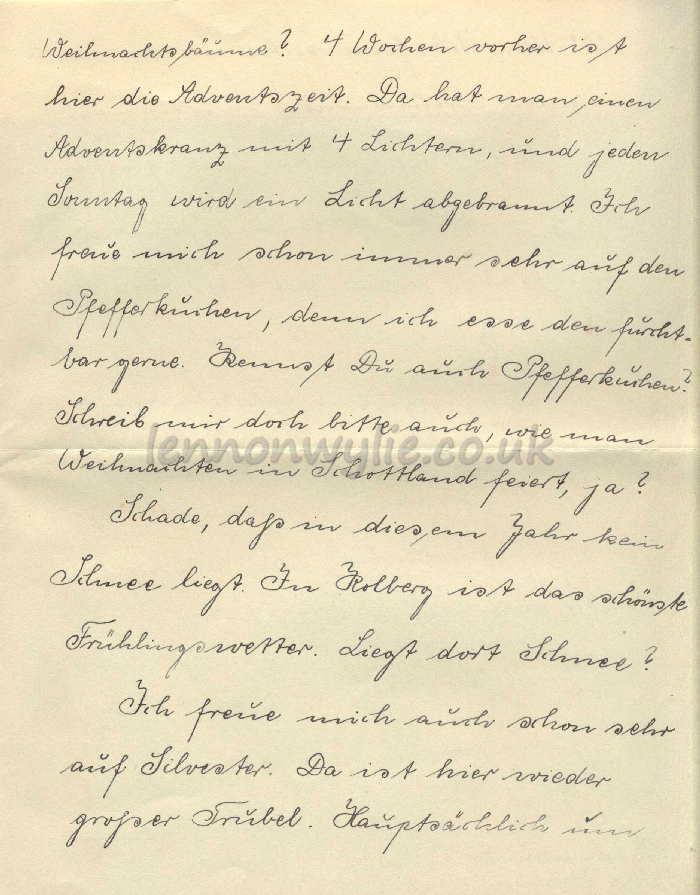 Weihnachtsbäume? 4 Wochen vorher ist
hier die Adventszeit. Da hat man einen
Adventskranz mit 4 Lichtern, und jeden
Sonntag wird ein Licht abgebrannt. Ich
freue mich schon immer sehr auf den
Pfefferkuchen, denn ich esse den furcht-
bar gerne. Kennst Du auch Pfefferkuchen?
Schreib mir doch bitte auch, wie man
lennonwylie.co.uk
Weihnachten in Schottland feiert, ja?
Schade, daß in diesem Jahr kein
Schnee liegt. In Kolberg ist das schönste
Frühlingswetter. Liegt dort Schnee?
Ich freue mich auch schon sehr
auf Silvester. Da ist hier wieder
großer Trubel. Hauptsächlich um